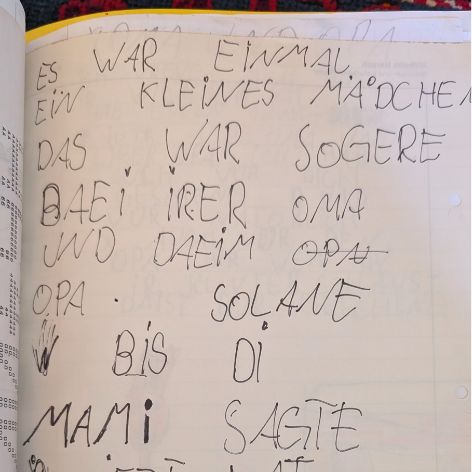 ES WAR EINMAL
EIN KLEINES MÄDCHEN
DAS WAR SOGERE
BAEI IRER OMA
UND DAEIM OPA
OPA . SOLANE
W BIS DI
MAMI SAGTE